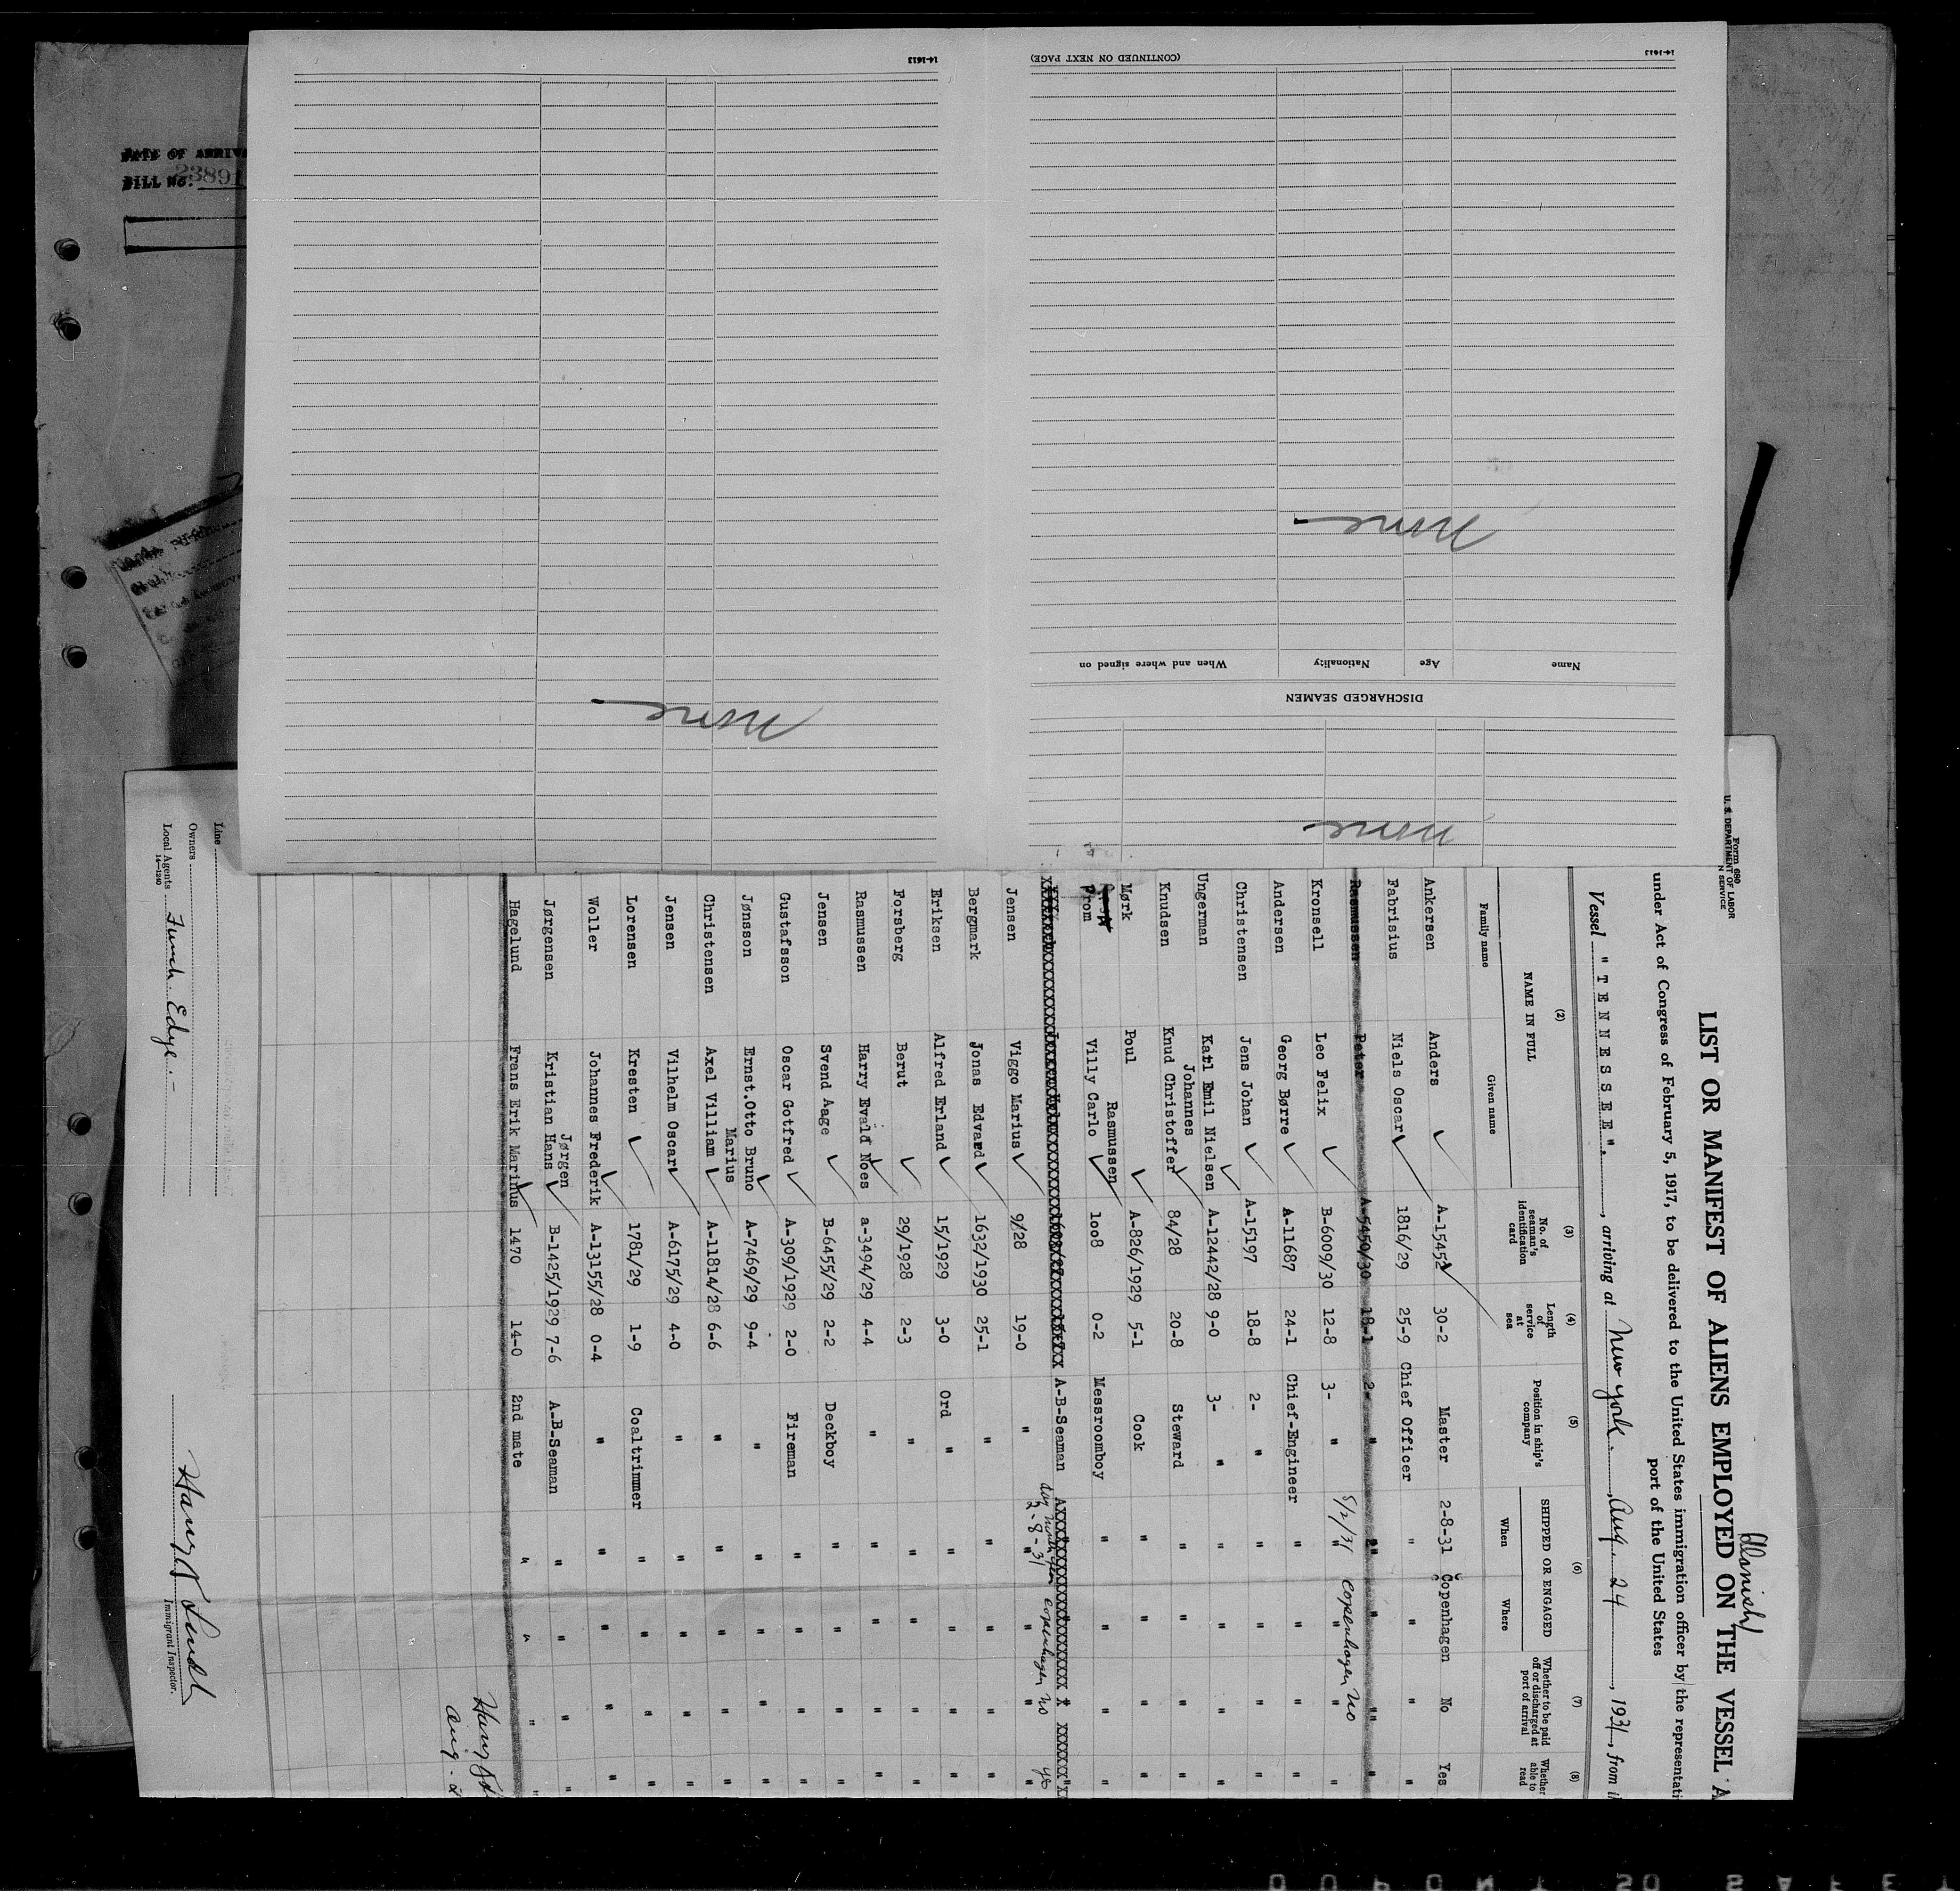 14-1613
(CONTINUED ON NEXT PAGE)
14-1613
None
Name Age Nationality When and where signed on
DISCHARGED SEAMEN
None
None
BILL No. 23891
Form 680
U. S. DEPARTMENT OF LABOR
N SERVICE
Danish
LIST OR MANIFEST OF ALIENS EMPLOYED ON THE VESSEL A
under Act of Congress of February 5, 1917, to be delivered to the United States immigration officer by the representati
port of the United States
Vessel "TENNESSEE"., arriving at New York., Aug. 24, 1931, from
(2) (3) (4) (5) (6) (7) (8)
NAME IN FULL
Family name Given name
No. of seaman's identification card
Length of service at sea
Position in ship's company
SHIPPED OR ENGAGED
When Where
Whether to be paid off or discharged at port of arrival
Whether able to read
Ankersen Anders A-15452 30-2 Master 2-8-31 Copenhagen No Yes
Fabrisius Niels Oscar 1816/29 25-9 Chief Officer " " " "
Rasmussen Peter A-5450/30 18-1 2- " " " " "
5/2/31 Copenhagen No
Kronsell Leo Felix B-6009/30 12-8 3- " " " " "
Andersen Georg Børre A-11687 24-1 Chief-Engineer " " " "
Christensen Jens Johan A-15197 18-8 2- " " " " "
Ungerman Karl Emil Nielsen A-12442/28 9-0 3- " " " " "
Johannes
Knudsen Knud Christoffer 84/28 20-8 Steward " " " "
Mørk Poul A-826/1929 5-1 Cook " " " "
Rasmussen
Prom Villy Carlo 1008 0-2 Messroomboy " " " "
A-B-Seaman
day month year
2-8-31 Copenhagen No yes
Jensen Viggo Marius 9/28 19-0 " " " " "
Bergmark Jonas Edvard 1632/1930 25-1 " " " " "
Eriksen Alfred Erland 15/1929 3-0 Ord " " " " "
Forsberg Berut 29/1928 2-3 " " " " "
Rasmussen Harry Evald Noes a-3494/29 4-4 " " " " "
Jensen Svend Aage B-6455/29 2-2 Deckboy " " " "
Gustafsson Oscar Gotfred A-309/1929 2-0 Fireman " " " "
Jønsson Ernst.Otto Bruno A-7469/29 9-4 " " " " "
Marius
Christensen Axel Villiam A-11814/28 6-6 " " " " "
Jensen Vilhelm Oscar A-6175/29 4-0 " " " " "
Lorensen Kresten 1781/29 1-9 Coaltrimmer " " " "
Woller Johannes Frederik A-13155/28 0-4 " " " " "
Jørgen
Jørgensen Kristian Hans B-1425/1929 7-6 A-B-Seaman " " " "
Hagelund Frans Erik Marinus 1470 14-0 2nd mate " " " "
Aug. 2
Line
Owners
Local Agents Funch. Edye.-
14-1240
Immigrant Inspector.